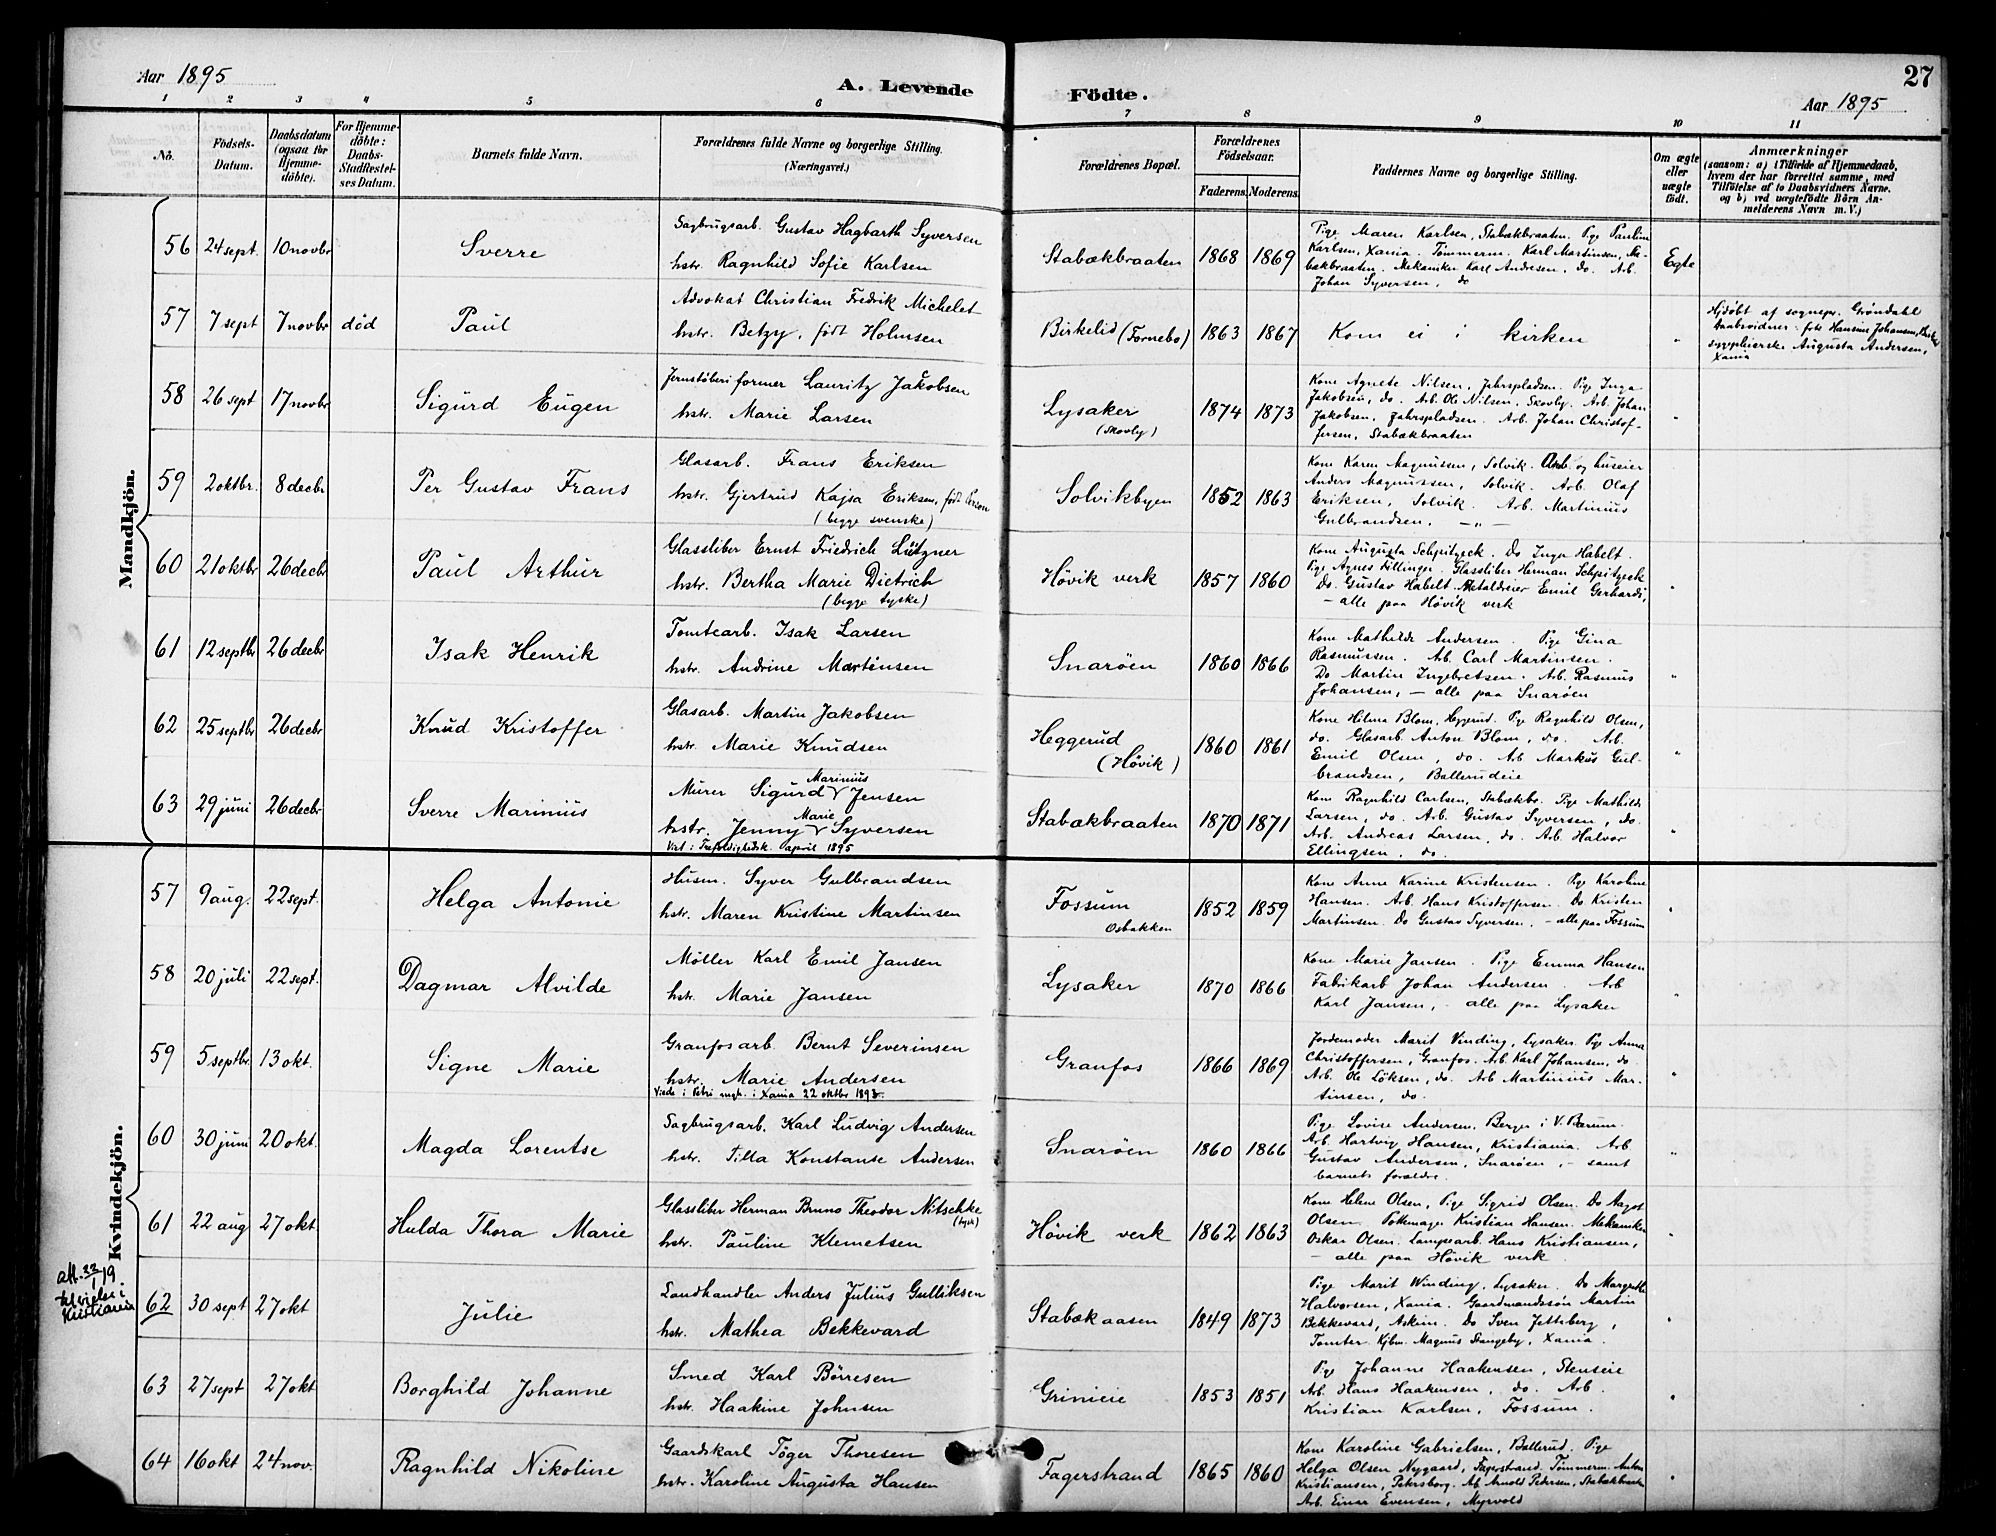 Aar 1895
A. Levende Födte.
27
Aar 1895
1 2 3 4 5 6 7 8 9 10 11
No.
Födsels-Datum.
Daabsdatum (ogsaa for Hjemme-döbte).
For Hjemme-döbte: Daabs-Stadfæstel-ses Datum.
Barnets fulde Navn.
Forældrenes fulde Navne og borgerlige Stilling.
(Næringsvei.)
Forældrenes Bopæl.
Forældrenes Födselsaar.
Faderens. Moderens.
Faddernes Navne og borgerlige Stilling.
Om ægte eller uægte födt.
Anmærkninger
(saasom: a) i Tilfælde af Hjemmedaab,
hvem der har forrettet samme, med
Tilföielse af to Daabsvidners Navne.
og b) ved uægtefödte Börn An-
melderens Navn m. V.)
Mandkjön.
56 24 sept. 10 novbr Sverre
Sagbrugsarb. Gustav Hagbarth Syversen
hstr. Ragnhild Sofie Karlsen
Stabækbraaten 1868 1869
Pige Maren Karlsen, Stabækbraaten. Pige Pauline
Karlsen, Xania. Tömmerm. Karl Martinsen, Sta-
bækbraaten. Mekaniker Karl Andresen, do. Arb.
Johan Syversen, do
Egte
57 7 sept 7 novbr död Paul
Advokat Christian Fredrik Michelet
hstr. Betzy, født Holmsen
Birkelid (Fornebo) 1863 1867
Kom ei i kirken
"
Hjdøbt af sognepr. Grøndahl
Daabsvidner: frk Hansine Johansen,
sygepleierske Augusta Andersen,
Xania
58 26 sept 17 novbr Sigurd Eugen
Jernstöberiformer Lauritz Jakobsen
hstr. Marie Larsen
Lysaker
(Skovly)
1874 1873
Kone Agnete Nilsen, Jahrspladsen. Pige Inga
Jakobsen, do. Arb. Ole Nilsen, Skovly. Arb. Johan
Jakobsen, Jahrspladsen. Arb. Johan Christof-
fersen, Stabækbraaten
"
59 2 oktbr. 8 decbr Per Gustav Frans
Glasarb. Frans Eriksen
hstr. Gjertrud Kajsa Eriksen, født Person
(begge svenske)
Solvikbyen 1852 1863
Kone Karen Magnussen, Solvik. Arb. og huseier
Anders Magnussen, Solvik. Arb. Olaf
Eriksen, Solvik. Arb. Martinius
Gulbrandsen, — " —
60 21 oktbr 26 decbr Paul Arthur
Glassliber Ernst Friedrich Lützner
hstr. Bertha Marie Dietrich
(begge tyske)
Hövik verk 1857 1860
Kone Augusta Schpitzeck. Do Inga Habelt.
Pige Agnes Fillinger. Glassliber Herman Schpitzeck
Do Gustav Habelt. Metaldreier Emil Gerhardi,
— alle paa Hövik verk
"
61 12 septbr 26 decbr Isak Henrik
Tomtearb. Isak Larsen
hstr. Andrine Martinsen
Snaröen 1860 1866
Kone Mathilde Andersen. Pige Gina
Rasmussen. Arb. Carl Martinsen.
Do Martin Ingebretsen. Arb. Rasmus
Johansen, — alle paa Snaröen
"
62 25 septbr 26 decbr Knud Kristoffer
Glasarb. Martin Jakobsen
hstr. Marie Knudsen
Heggerud
(Hövik)
1860 1861
Kone Hilma Blom, Heggerud. Pige Ragnhild Olsen,
do. Glasarb. Anton Blom, do. Arb.
Emil Olsen, do. Arb Markus Gul-
brandsen, Ballerudeie
"
63 29 juni 26 decbr Sverre Marinius
Marinius
Murer Sigurd Jensen
Marie
hstr. Jenny Syversen
Viet i Trefoldighedsk. april 1895
Stabækbraaten 1870 1871
Kone Ragnhild Carlsen, Stabækbr. Pige Mathilde
Larsen, do. Arb. Gustav Syversen, do.
Arb. Andreas Larsen, do. Arb. Halvor
Ellingsen, do.
"
Kvindekjön.
57 9 aug. 22 sept. Helga Antonie
Husm. Syver Gulbrandsen
hstr. Maren Kristine Martinsen
Fossum
Osbakken
1852 1859
Kone Anne Karine Kristensen. Pige Karoline
Hansen. Arb. Hans Kristoffersen. Do Kristen
Martinsen. Do Gustav Syversen. — alle paa Fossum
"
58 20 juli 22 sept. Dagmar Alvilde
Möller Karl Emil Jansen
hstr. Marie Jansen
Lysaker 1870 1866
Kone Marie Jansen. Pige Emma Hansen
Fabrikarb Johan Andersen. Arb
Karl Jansen, — alle paa Lysaker
"
59 5 septbr 13 okt. Signe Marie
Granfosarb. Bernt Severinsen
hstr. Marie Andersen
Viede i Petri mgh. i Xania 22 oktbr 1893.
Granfos 1866 1869
Jordemoder Marit Vinding, Lysaker. Pige Anna
Christoffersen, Granfos. Arb. Karl Johansen, do
Arb. Ole Löksen, do. Arb Martinius Mar-
tinsen, do.
"
60 30 juni 20 okt. Magda Lorentse
Sagbrugsarb. Karl Ludvig Andersen
hstr. Tilla Konstanse Andersen
Snaröen 1860 1866
Pige Lovise Andersen, Berger i V. Bærum.
Arb. Hartvig Hansen, Kristiania. Arb
Gustav Andersen, Snaröen, — samt
barnets forældre.
"
61 22 aug 27 okt Hulda Thora Marie
Glassliber Herman Bruno Theodor Nitschke
(tysk)
hstr. Pauline Klemetsen
Hövik verk 1862 1863
Kone Helene Olsen, Pige Sigrid Olsen. Do Aagot
Olsen. Pottemager Kristian Hansen. Mekaniker
Oskar Olsen. Lampearb. Hans Kristiansen,
— alle paa Hövik verk
"
att. 22/1 19
til vielse i
Kristiania
62 30 sept 27 okt Julie
Landhandler Anders Julius Gulliksen
hstr. Mathea Bekkevard
Stabækaasen 1849 1873
Pige Marit Winding, Lysaker. Do Margrethe
Halvorsen, Xania. Gaardmandssön Martin
Bekkevard, Askim. Do Sven Jettsberg,
Tomter. Kjbm. Magnus Stangeby, Xania.
"
63 27 sept 27 okt Borghild Johanne
Smed Karl Börresen
hstr. Haakine Johnsen
Grinieie 1853 1851
Pige Johanne Haakensen, Stenseie
Arb. Hans Haakensen, do. Arb.
Kristian Karlsen, Fossum.
"
64 16 okt 24 nov. Ragnhild Nikoline
Gaardskarl Töger Thoresen
hstr. Karoline Augusta Hansen
Fagerstrand 1865 1860
Kone Karoline Gabrielsen, Ballerud. Pige
Helga Olsen Nygaard, Fagerstrand. Tömmerm. Anton
Kristiansen, Petersborg. Arb Arnold Pedersen, Stabækbraaten
Arb. Einar Evensen, Myrvold
"